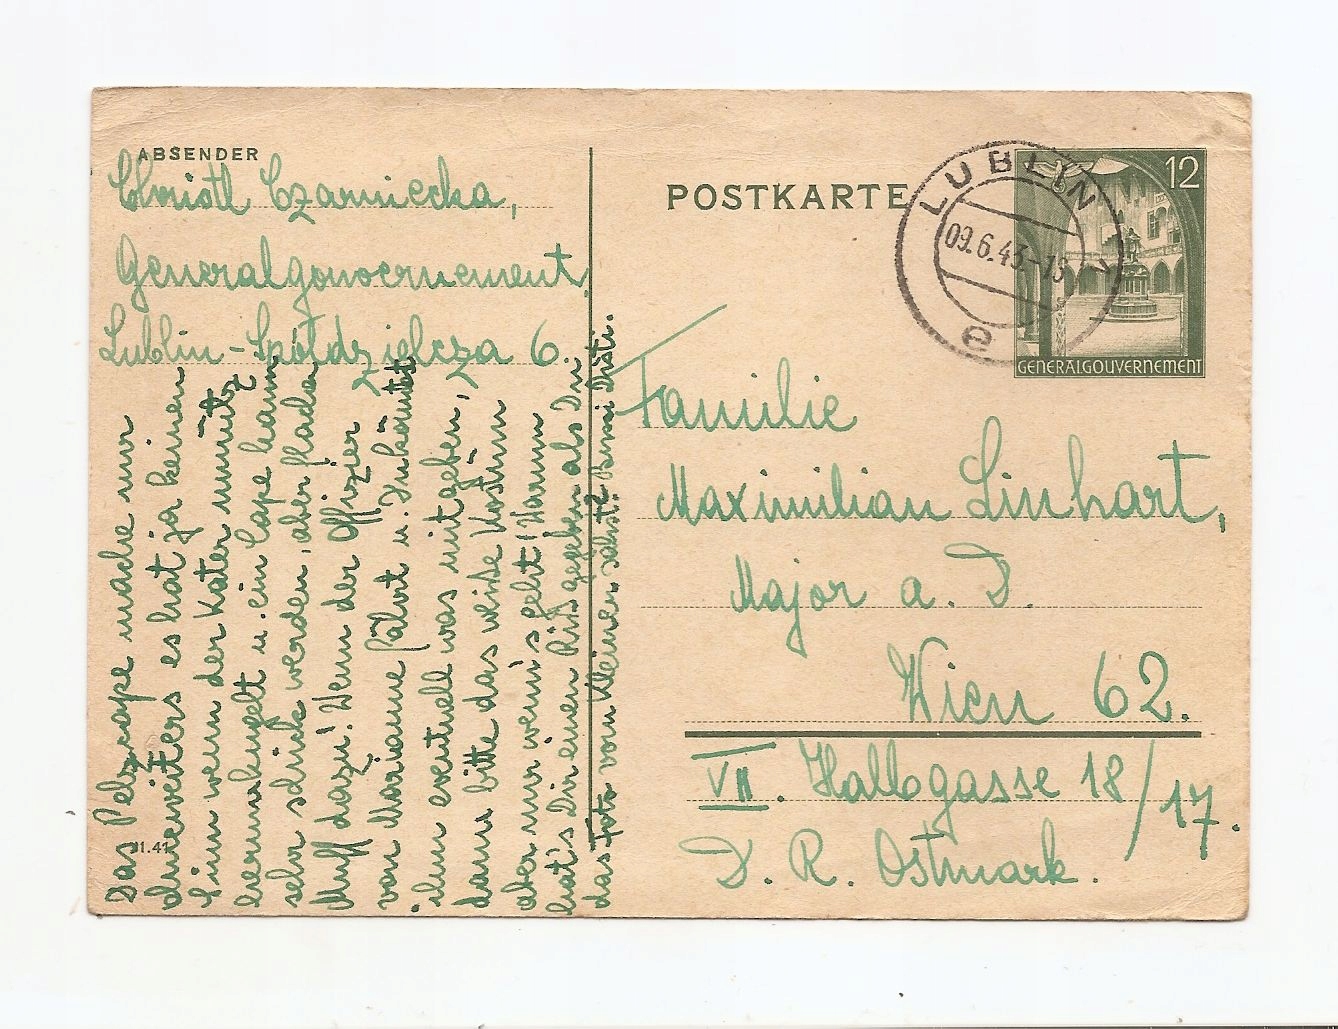 ABSENDER
Christl Czarniecka,
Generalgouvernement,
Lublin - Spółdzielcza 6.
POSTKARTE
LUBLIN
09.6.43-18
e
12
GENERALGOUVERNEMENT
Familie
Maximilian Linhart,
Major a. D.
Wien 62.
VII. Halbgasse 18/17.
D. R. Ostmark.
II.41
Das Pelzcape mache nur
ohneweiters es hat ja keinen
Sinn wenn der Kater nunütz
herumkugelt u. ein Cape kann
sehr schick werden, aber flacher
Muff dazu! Wenn der Offizier
von Marianne fährt u. Ihr könntet
ihm eventuell was mitgeben,
dann bitte das weiße Kostüm
aber nur wenn's geht! Wann
hat's Dir einen Riß gegeben als Du
das Foto vom Kleinen sahst? Bussi Christi.